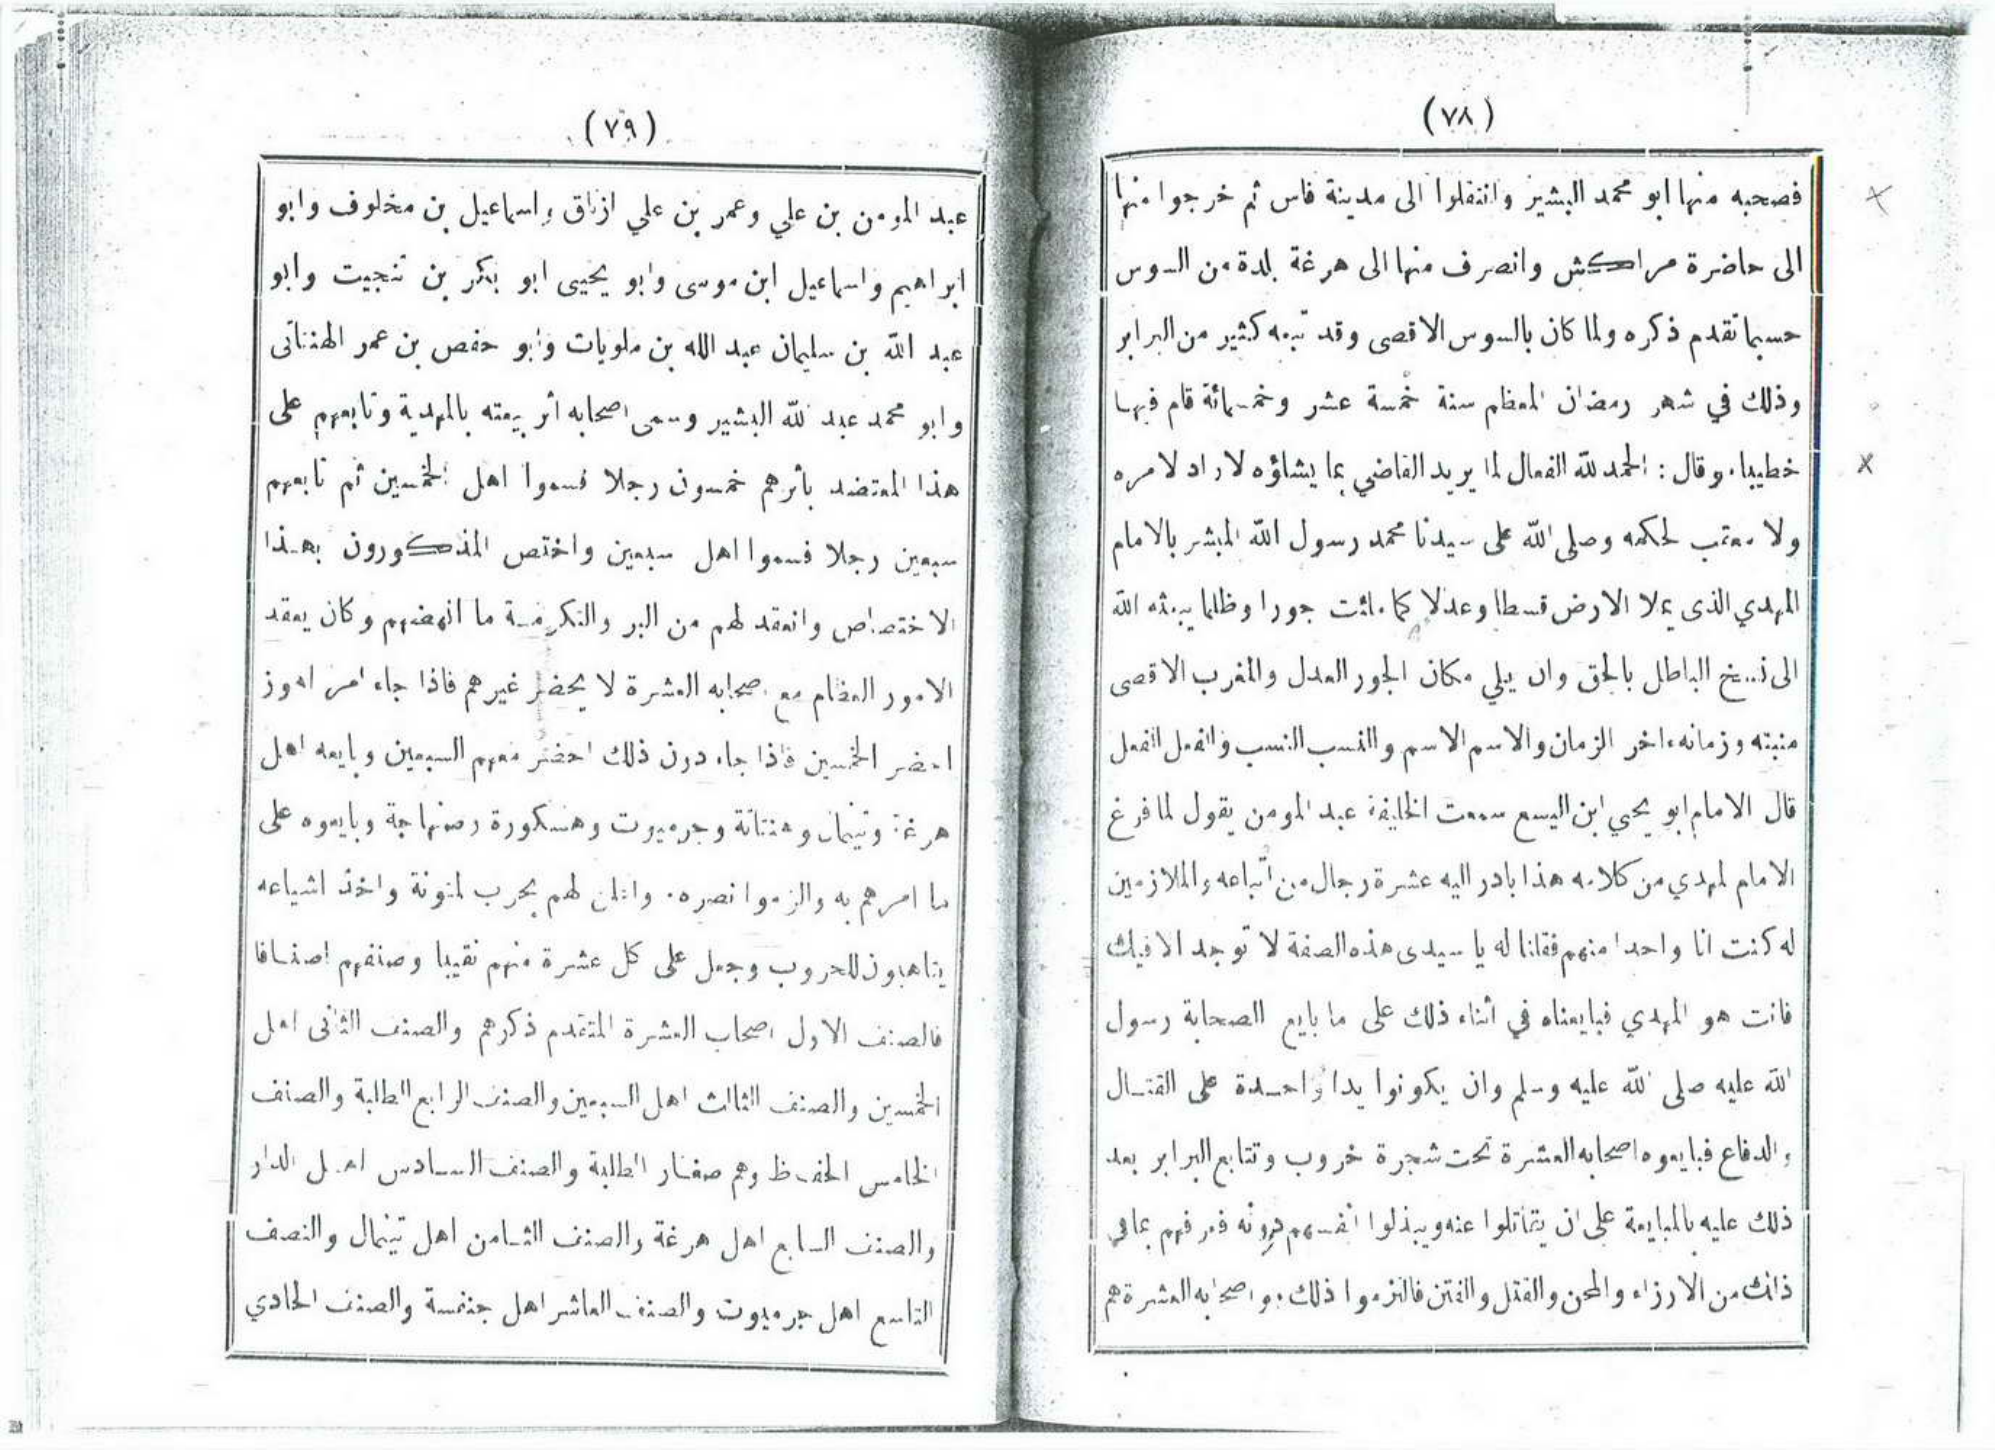 (٧٨)
فصحبه منها ابو محمد البشير وانتقلوا الى مدينة فاس ثم خرجوا منها
الى حاضرة مراكش وانصرف منها الى هرغة بلدة من السوس
حسبما تقدم ذكره ولما كان بالسوس الاقصى وقد تبعه كثير من البرابر
وذلك في شهر رمضان المعظم سنة خمسة عشر وخمسمائة قام فيها
خطيبا. وقال : الحمد لله الفعال لما يريد القاضي بما يشاؤه لا راد لامره
ولا معقب لحكمه وصلى الله على سيدنا محمد رسول الله المبشر بالامام
المهدي الذى يملا الارض قسطا وعدلا كما ملئت جورا وظلما يبعثه الله
الى نسخ الباطل بالحق وان يلي مكان الجور العدل والمغرب الاقصى
منبته وزمانه ءاخر الزمان والاسم الاسم والنسب النسب والفعل الفعل
قال الامام ابو يحيي ابن اليسع سمعت الخليفة عبد المومن يقول لما فرغ
الامام لمهدي من كلامه هذا بادر اليه عشرة رجال من أتباعه والملازمين
له كنت انا واحدا منهم فقلنا له يا سيدى هذه الصفة لا توجد الا فيك
فانت هو المهدي فبايعناه في أثناء ذلك على ما بايع الصحابة رسول
الله عليه صلى الله عليه وسلم وان يكونوا يدا واحدة على القتال
والدفاع فبايعوه اصحابه العشرة تحت شجرة خروب وتتابع البرابر بعد
ذلك عليه بالمبايعة على ان يقاتلوا عنه ويبذلوا انفسهم دونه فعرفهم بما في
ذلك من الارزاء والمحن والقتل والفتن فالتزموا ذلك. واصحابه العشرة هم
(٧٩)
عبد المومن بن علي وعمر بن علي ازناق واسماعيل بن مخلوف وابو
ابراهيم واسماعيل ابن موسى وابو يحيى ابو بكر بن تنجيت وابو
عبد الله بن سليمان عبد الله بن ملويات وابو حفص بن عمر الهنتاتى
وابو محمد عبد لله البشير وسمى اصحابه أثر بيعته بالمهدية وتابعهم على
هذا المعتضد بأثرهم خمسون رجلا فسموا اهل الخمسين ثم تابعهم
سبعين رجلا فسموا اهل سبعين واختص المذكورون بهذا
الاختصاص وانعقد لهم من البر والتكرمة ما انهضهم وكان يعقد
الامور العظام مع اصحابه العشرة لا يحضر غيرهم فاذا جاء امر اهوز
احضر الخمسين فاذا جاء دون ذلك احضر معهم السبعين وبايعه اهل
هرغة وتينمال وهنتاتة وجرميوت وهسكورة وصنهاجة وبايعوه على
ما امرهم به والزموا نصره. واعلن لهم بحرب لمتونة واخذ اشياعه
يتاهبون للحروب وجعل على كل عشرة منهم نقيبا وصنفهم اصنافا
فالصنف الاول اصحاب العشرة المتقدم ذكرهم والصنف الثانى اهل
الخمسين والصنف الثالث اهل السبعين والصنف الرابع الطلبة والصنف
الخامس الحفاظ وهم صغار الطلبة والصنف السادس اهل الدار
والصنف السابع اهل هرغة والصنف الثامن اهل تينمال والنصف
التاسع اهل جرميوت والصنف العاشر اهل جنفسة والصنف الحادي